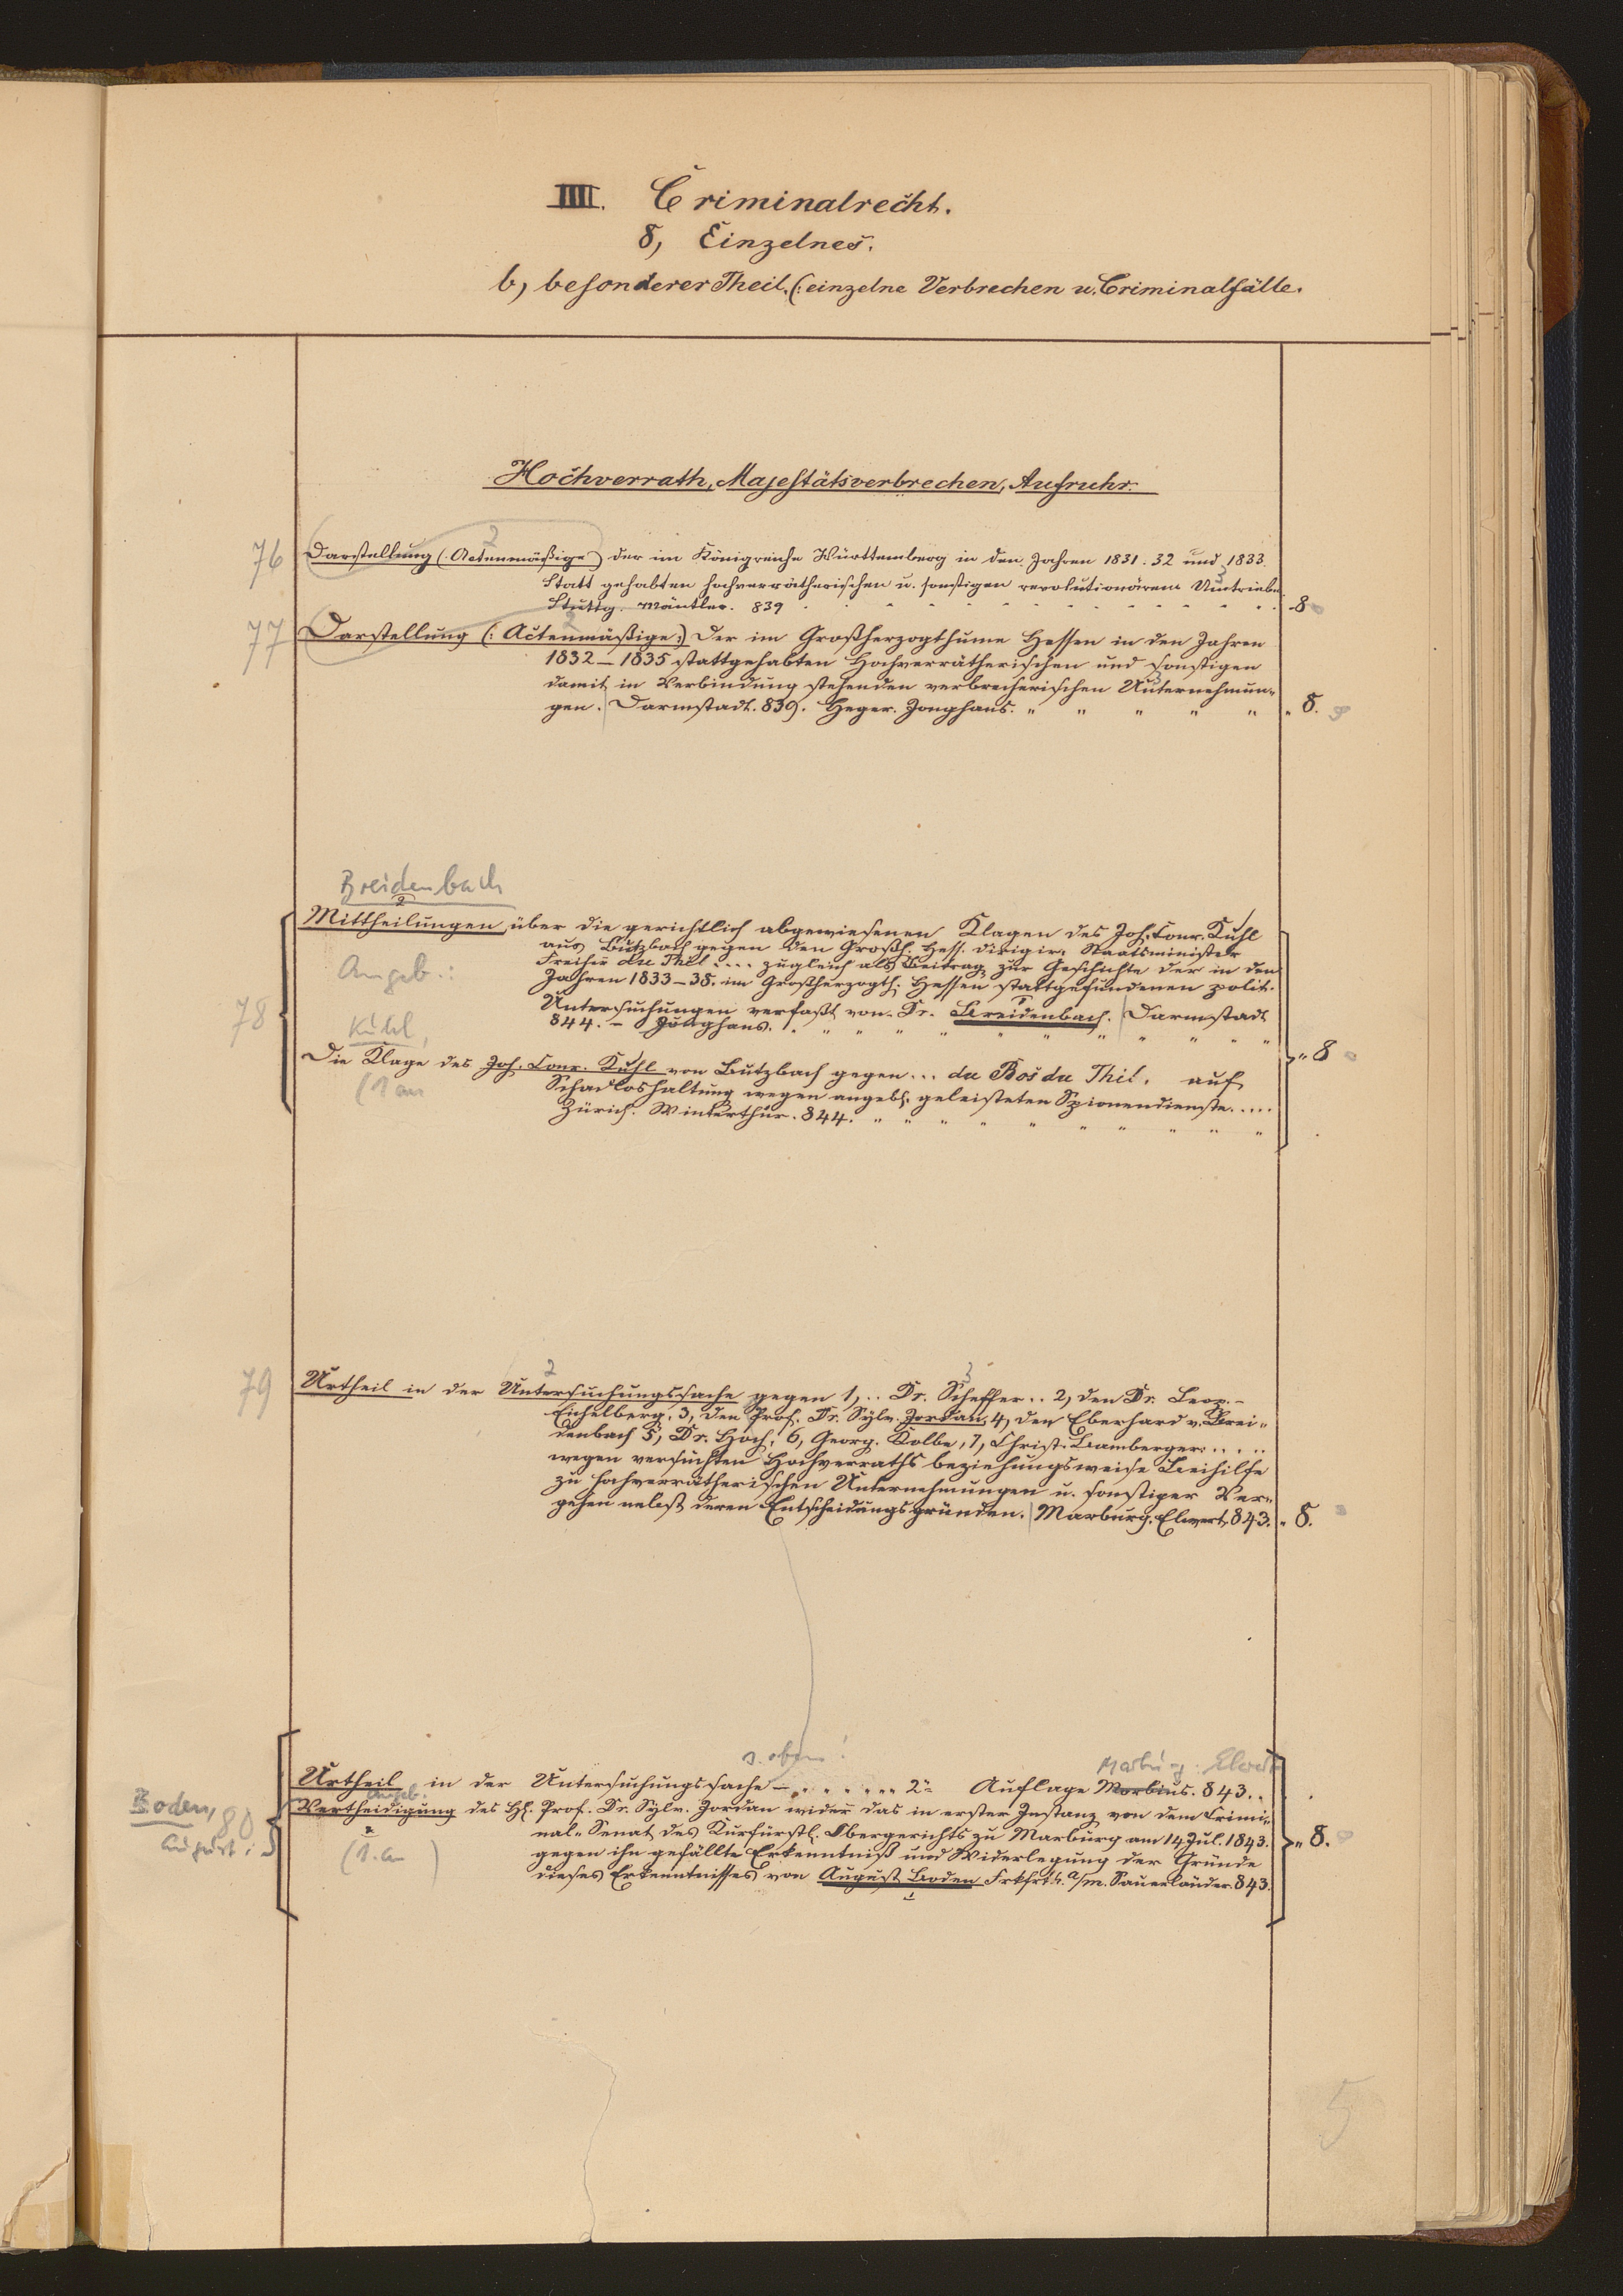 IIII. Criminalrecht.
8, Einzelnes.
b, besonderer Theil. (: einzelne Verbrechen u. Criminalfälle.
Hochverrath, Majestätsverbrechen, Aufruhr.
76 Darstellung (: Actenmäßige) der im Königreiche Württemberg in den Jahren 1831. 32 und 1833.
Statt gehabten hochverrätherischen u. sonstigen revolutionären Umtriebe
Stuttg. Mäntler. 839 8
77 Darstellung (: Actenmäßige:) Der im Großherzogthume Hessen in den Jahren
1832 – 1835 stattgehabten Hochverrätherischen und sonstigen
damit in Verbindung stehenden verbrecherischen Unternehmun-
gen. Darmstadt. 839. Heger. Jonghaus. " " " " " " 8.
Breidenbach
Mittheilungen über die gerichtlich abgewiesenen Klagen des Joh. Conr. Kuhl
aus Butzbach gegen den Großh. Hess. dirigir. Staatsminister
Freiherr du Thil .... zugleich als Beitrag zur Geschichte der in den
Angeb.:
Jahren 1833–38. im Großherzogth. Hessen stattgefundenen polit.
78
Untersuchungen verfaßt von Dr. Breidenbach. Darmstadt
844. – Jonghaus.
Kuhl,
Die Klage des Joh. Conr. Kuhl von Butzbach gegen ... du Bos du Thil. auf " 8
(1 an
Schadloshaltung wegen angebl. geleisteten Spionendienste.....
Zürich. Winterthur. 844. " " " " " " " " " "
79 Urtheil in der Untersuchungssache gegen 1, .. Dr. Scheffer .. 2, den Dr. Leop. –
Eichelberg, 3, den Prof. Dr. Sylv. Jordan, 4, den Eberhard v. Brei-
denbach 5, Dr. Hoch, 6, Georg. Kolbe, 7, Christ. Bamberger: ....
wegen versuchten Hochverraths beziehungsweise Beihilfe
zu hochverrätherischen Unternehmungen u. sonstiger Ver-
gehen nebst deren Entscheidungsgründen. Marburg. Elwert. 843. " 8.
s. oben! Marburg: Elwert
Urtheil in der Untersuchungssache – 2" Auflage Morbius. 843.
Boden, August: 80
Angeb.
Vertheidigung des H. Prof. Dr. Sylv. Jordan wider das in erster Instanz von dem Crimi-
nal-Senat des Kurfürstl. Obergerichts zu Marburg am 14 Jul. 1843. " 8.
(1. an )
gegen ihn gefällte Erkenntniß und Widerlegung der Gründe
dieses Erkenntnisses von August Boden Frkfrt. a/m. Sauerländer. 843.
5